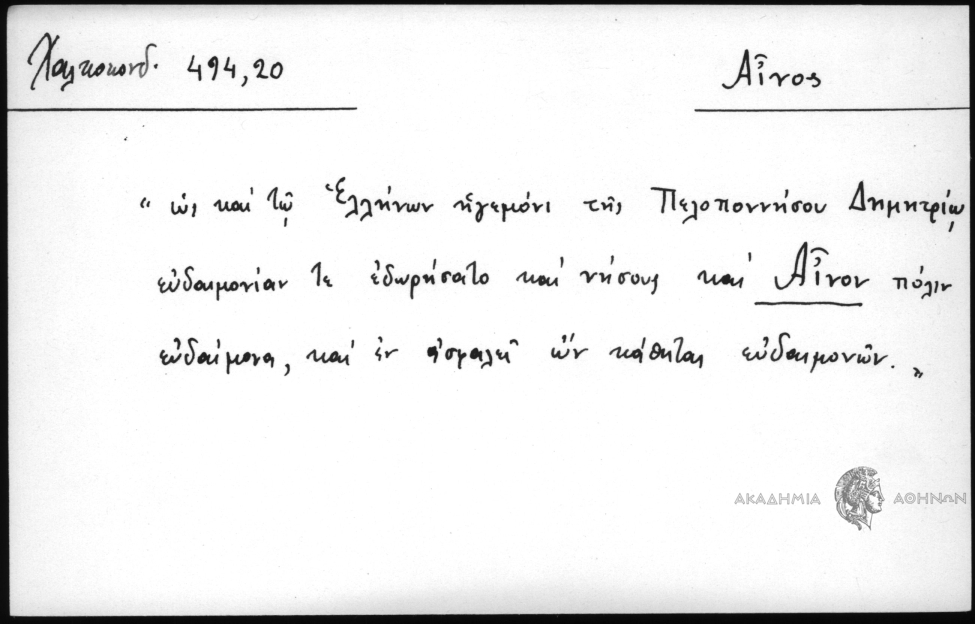 Χαλκοκονδ. 494,20
Αἶνος
“ ὡς καὶ τῷ Ἑλλήνων ἡγεμόνι τῆς Πελοποννήσου Δημητρίῳ
εὐδαιμονίαν τε ἐδωρήσατο καὶ νήσους καὶ Αἶνον πόλιν
εὐδαίμονα, καὶ ἐν ἀσφαλεῖ ὢν κάθηται εὐδαιμονῶν. „
ΑΚΑΔΗΜΙΑ ΑΘΗΝΩΝ